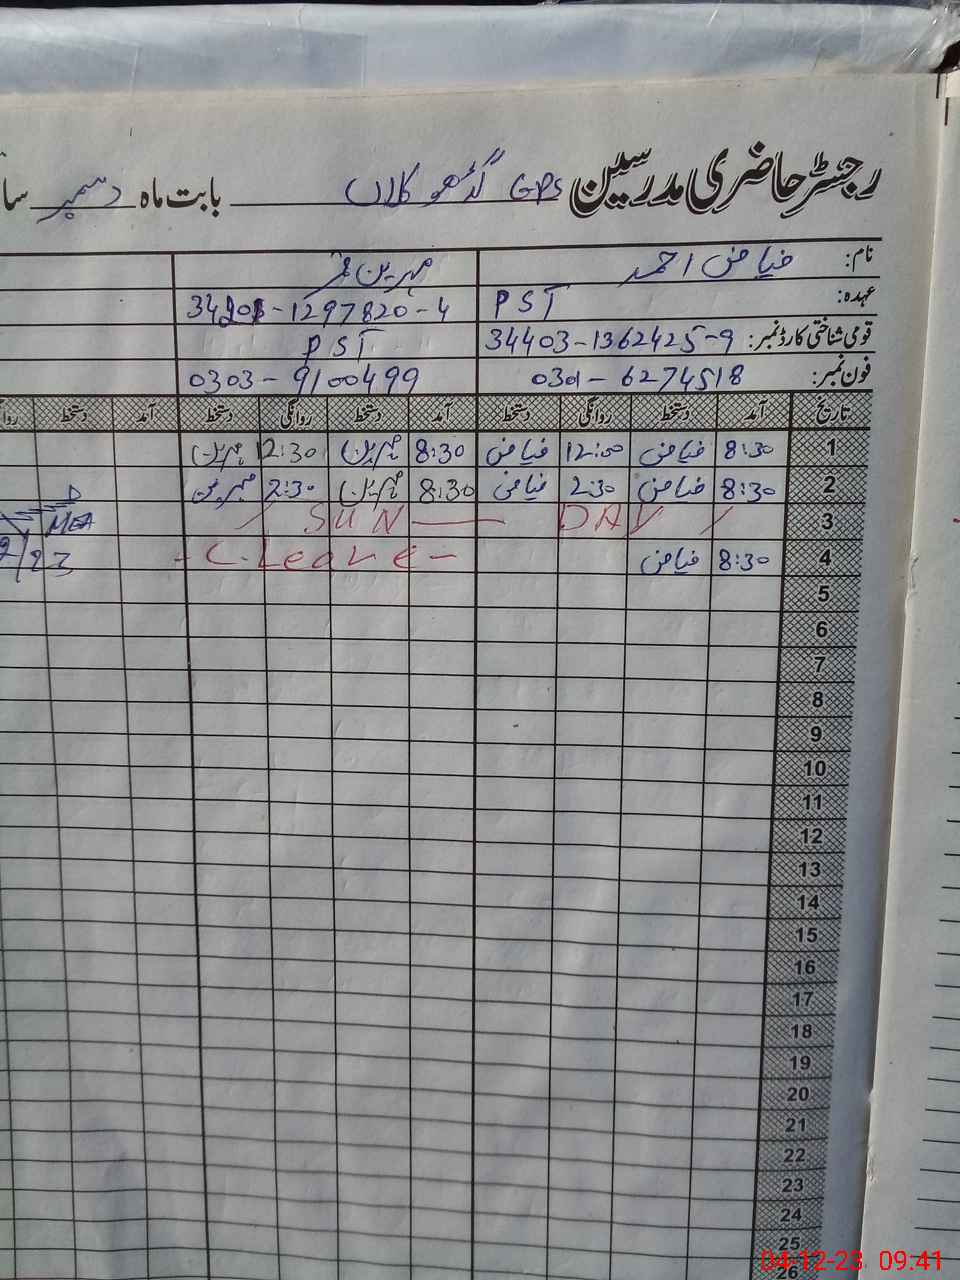 رجسٹر حاضری مدرسین GPS گڑھو کلاں بابت ماہ دسمبر سا
نام: فیاض احمد مہرین
عہدہ: PST 34203-1297820-4
قومی شناختی کارڈ نمبر: 34403-1362425-9 PST
فون نمبر: 0301-6274518 0303-9100499
تاریخ آمد دستخط روانگی دستخط آمد دستخط روانگی دستخط آمد دستخط روا
1 8:30 فیاض 12:00 فیاض 8:30 مہرین 12:30 مہرین
2 8:30 فیاض 2:30 فیاض 8:30 مہرین 2:30 مہرین
3 SUN — DAY MEA
4 8:30 فیاض - C.Leave - 2/23
5
6
7
8
9
10
11
12
13
14
15
16
17
18
19
20
21
22
23
24
25
26
04-12-23 09:41